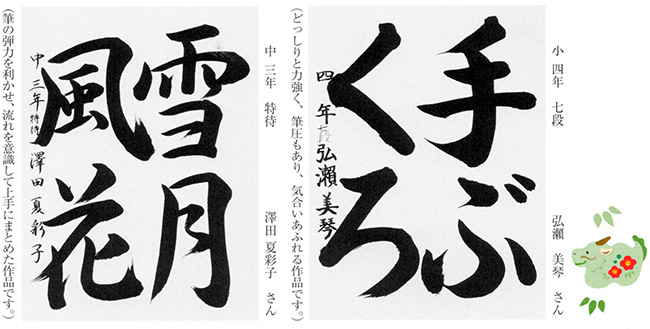 小四年 七段 弘瀬 美琴 さん
手ぶ
くろ
四年 七段 弘瀬美琴
(どっしりと力強く、筆圧もあり、気合いあふれる作品です。)
中三年 特待 澤田 夏彩子 さん
雪月
風花
中三年 特待 澤田夏彩子
(筆の弾力を利かせ、流れを意識して上手にまとめた作品です。)